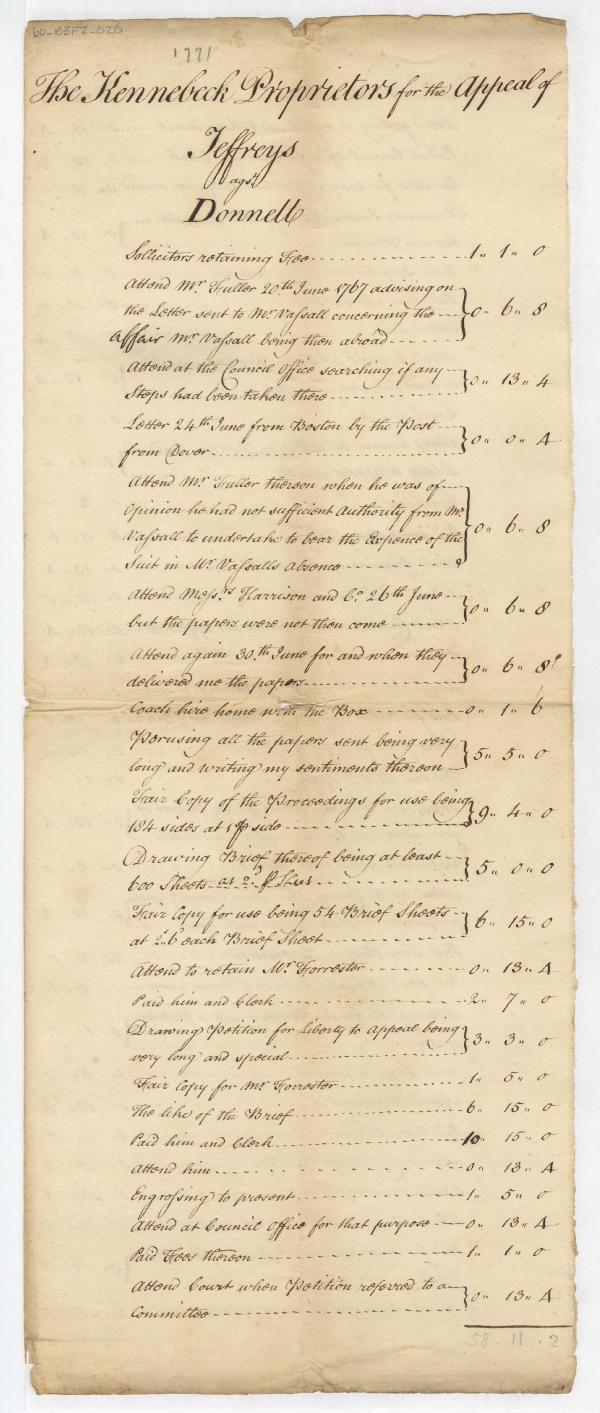 60-B3F2-D2D
1771
The Kennebeck Proprietors for the Appeal of
Jeffreys
agst
Donnell
Sollicitors retaining Fee 1 " 1 " 0
Attend Mr Fuller 20th June 1767 advising on
the Letter sent to Mr Vassall concerning the 0 " 6 " 8
affair Mr Vassall being then abroad
Attend at the Council Office searching if any
Steps had been taken there 0 " 13 " 4
Letter 24th June from Boston by the Post
from Dover 0 " 0 " 4
Attend Mr Fuller thereon when he was of
Opinion he had not sufficient Authority from Mr
Vassall to undertake to bear the Expence of the 0 " 6 " 8
Suit in Mr Vassalls absence
Attend Messrs Harrison and Co 26th June
but the papers were not then come 0 " 6 " 8
Attend again 30th June for and when they
delivered me the papers 0 " 6 " 8
Coach hire home with the Box 0 " 1 " 6
Perusing all the papers sent being very
long and writing my sentiments thereon 5 " 5 " 0
Fair Copy of the Proceedings for use being
184 sides at 1s ⅌ side 9 " 4 " 0
Drawing Brief thereof being at least
600 Sheets at 2d ⅌ Sheet 5 " 0 " 0
Fair Copy for use being 54 Brief Sheets
at 2s 6 each Brief Sheet 6 " 15 " 0
Attend to retain Mr Forrester 0 " 13 " 4
Paid him and Clerk 2 " 7 " 0
Drawing Petition for Liberty to Appeal being
very long and special 3 " 3 " 0
Fair Copy for Mr Forrester 1 " 5 " 0
The like of the Brief 6 " 15 " 0
Paid him and Clerk 10 " 15 " 0
Attend him 0 " 13 " 4
Engrossing to present 1 " 5 " 0
Attend at Council Office for that purpose 0 " 13 " 4
Paid Fees thereon 1 " 1 " 0
Attend Court when Petition referred to a
Committee 0 " 13 " 4
58 . 11 . 2